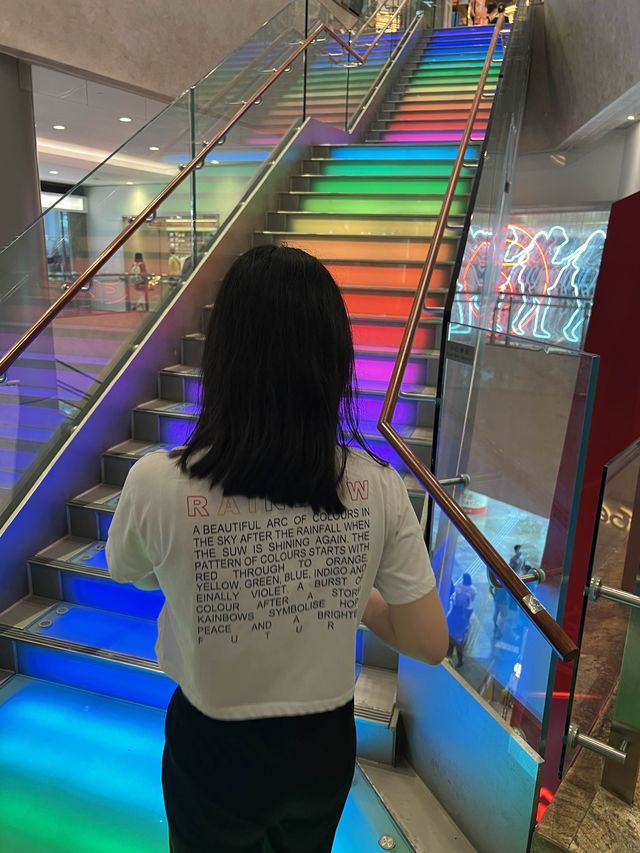 RAINBOW
A BEAUTIFUL ARC OF COLOURS IN
THE SKY AFTER THE RAINFALL WHEN
THE SUW IS SHINING AGAIN. THE
PATTERN OF COLOURS STARTS WITH
RED THROUGH TO ORANGE
YELLOW, GREEN, BLUE, INDIGO AND
EINALLY VIOLET. A BURST O
COLOUR AFTER A STOR
KAINBOWS SYMBOLISE HOP
PEACE AND A BRIGHTE
F U T U R